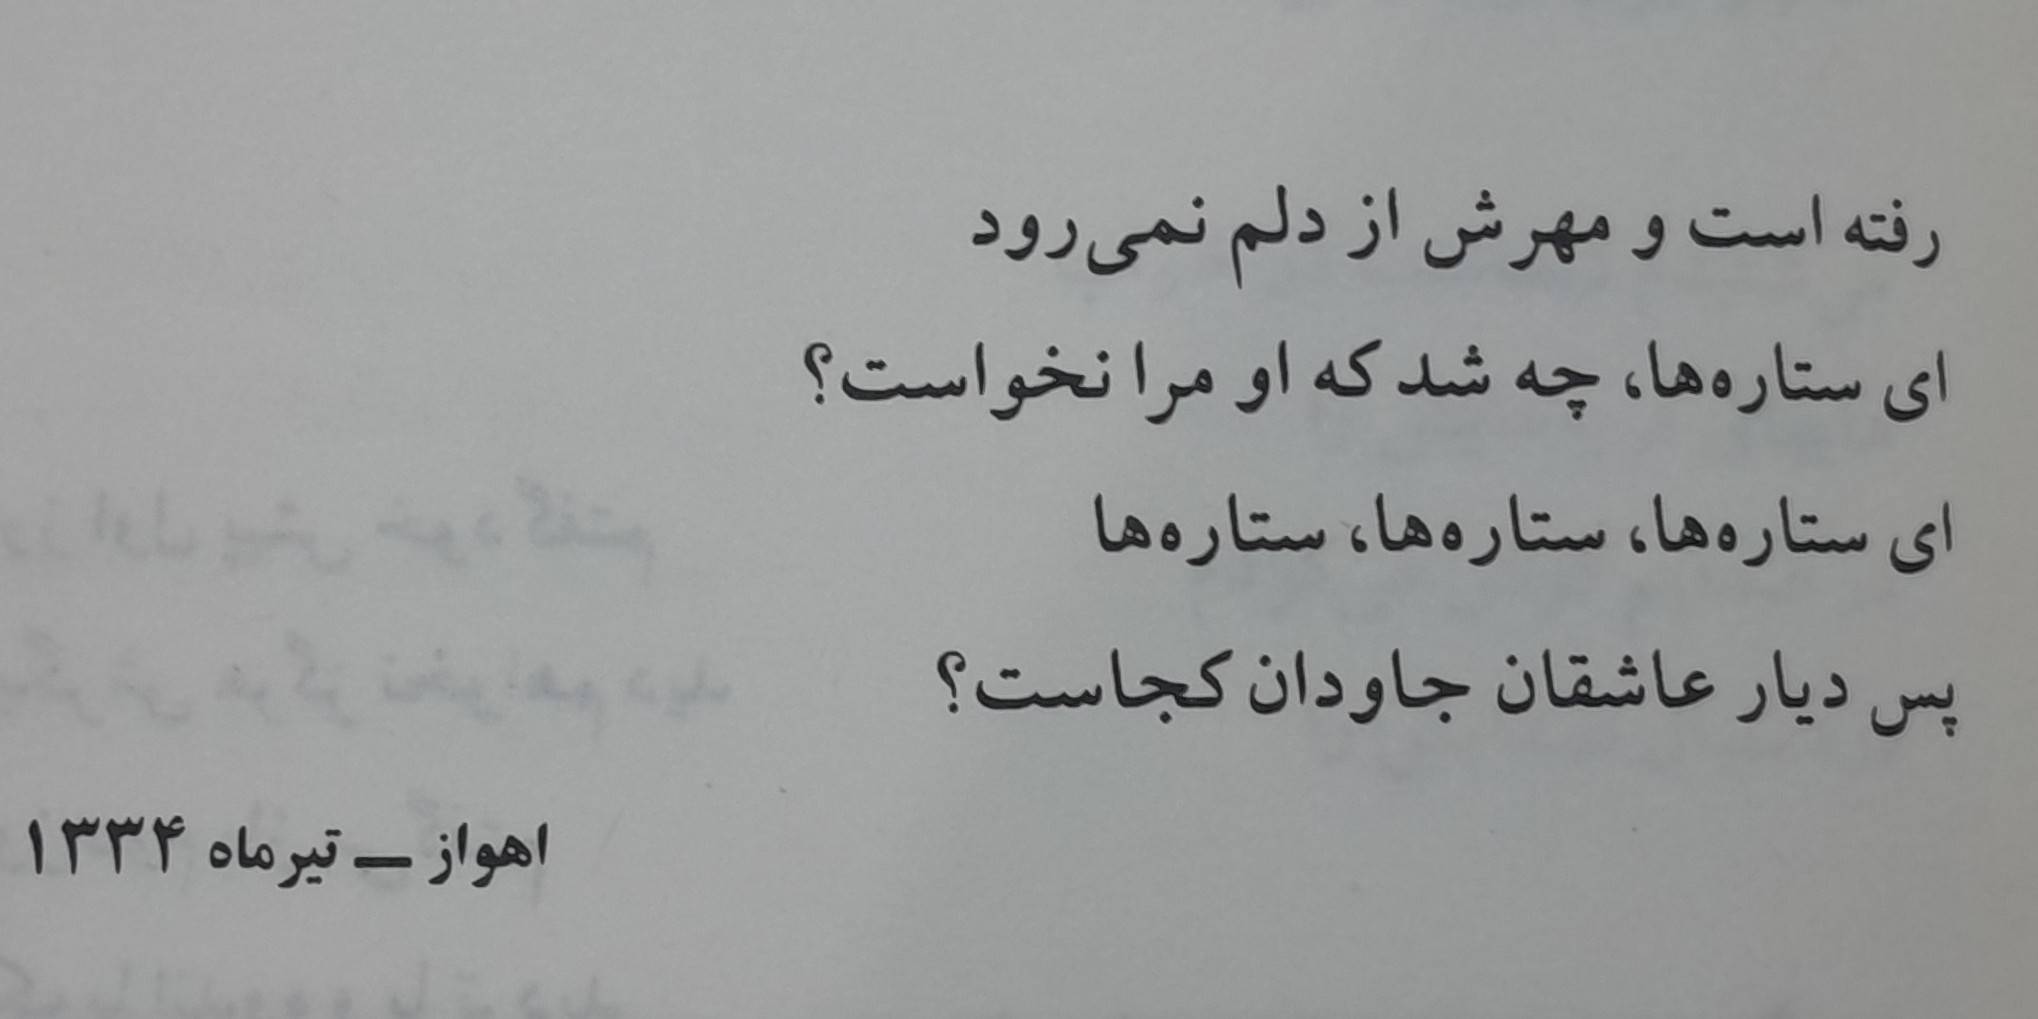 رفته است و مهرش از دلم نمی‌رود
ای ستاره‌ها، چه شد که او مرا نخواست؟
ای ستاره‌ها، ستاره‌ها، ستاره‌ها
پس دیار عاشقان جاودان کجاست؟
اهواز ــ تیرماه ۱۳۳۴